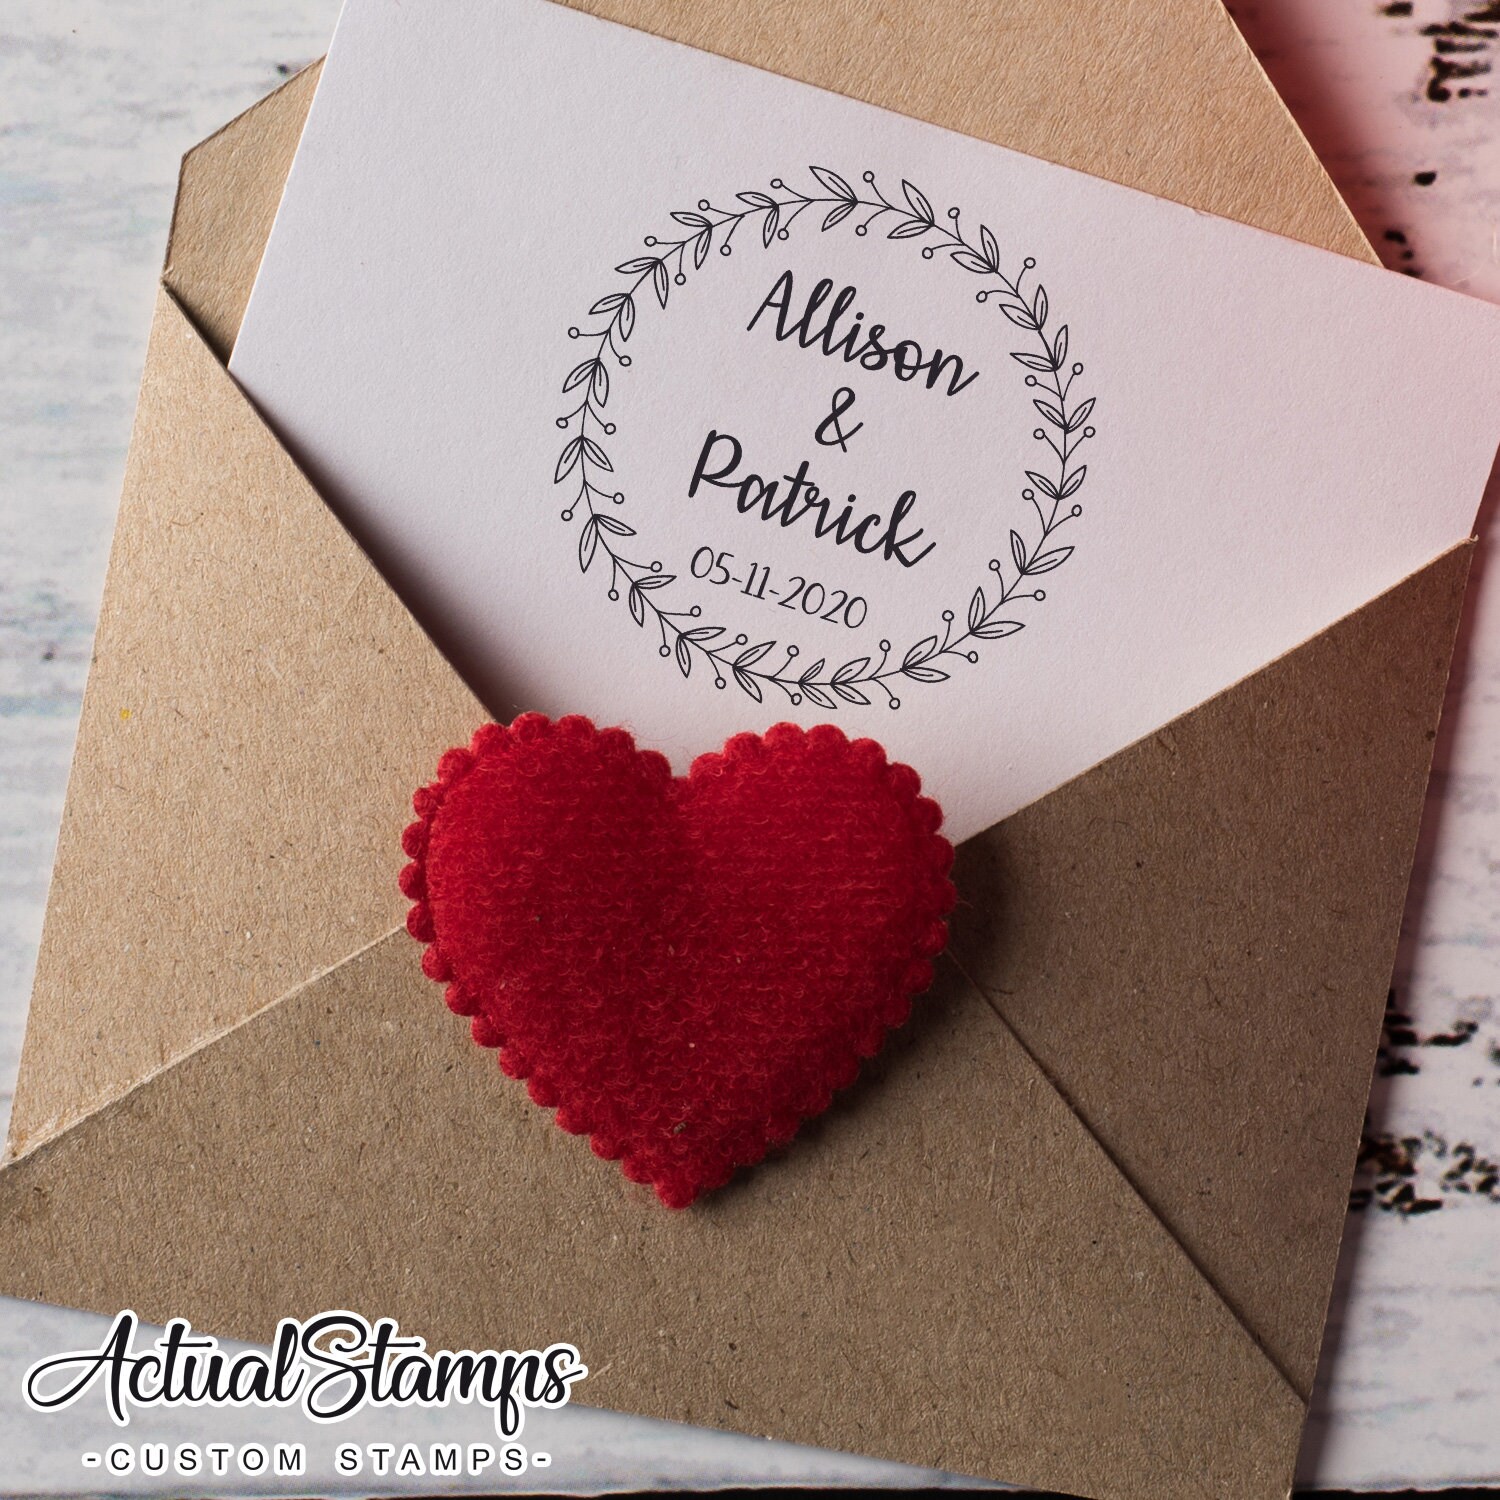 Allison
&
Patrick
05-11-2020
ActualStamps
-CUSTOM STAMPS-